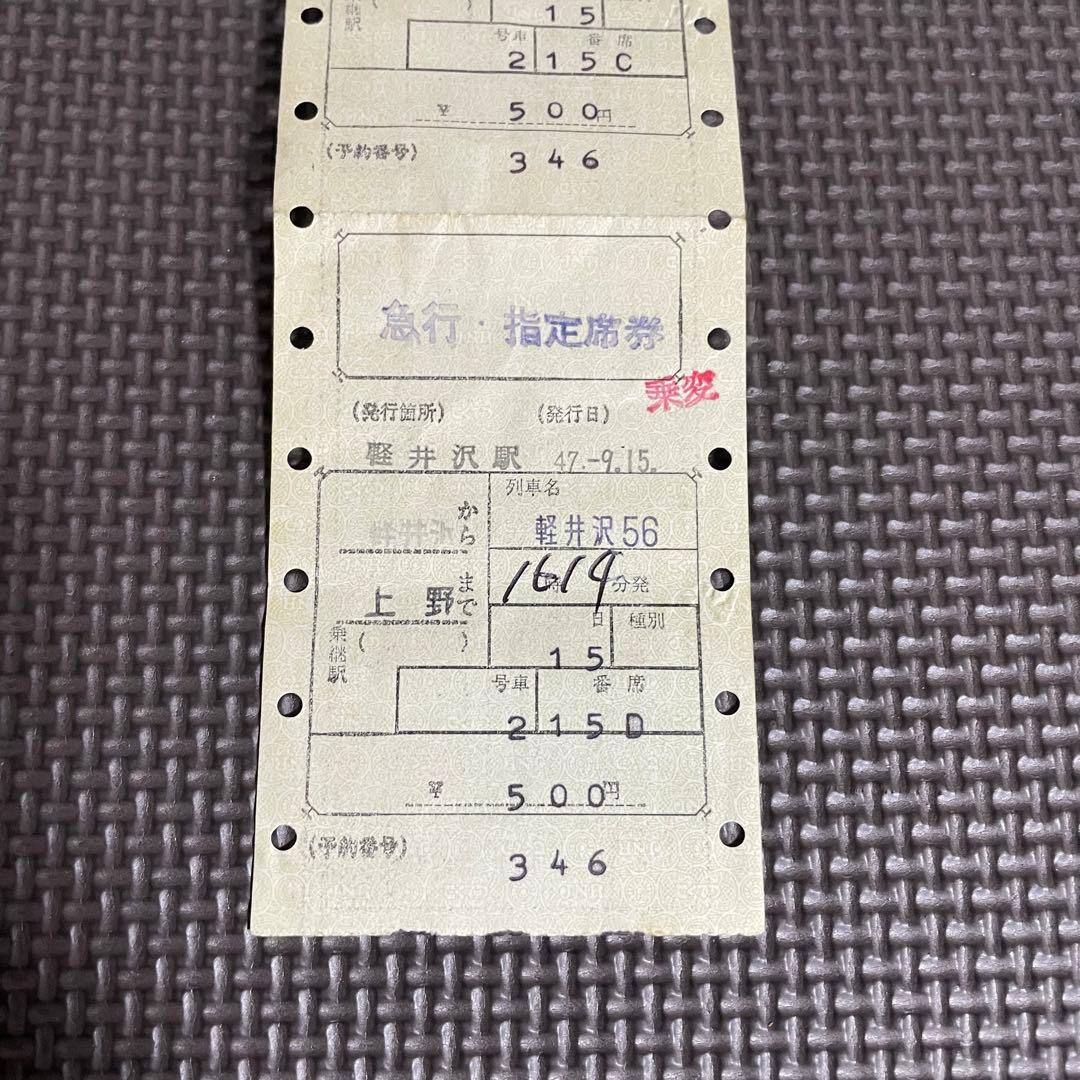 継駅 ( )
15
号車 番席
2 15C
¥ 500円
(予約番号) 346
急行・指定席券
乗変
(発行箇所) (発行日)
軽井沢駅 47.-9.15.
列車名
軽井沢から 軽井沢56
1619
時 分発
上野まで
日 種別
乗継駅 ( ) 15
号車 番席
2 15D
¥ 500円
(予約番号)
346